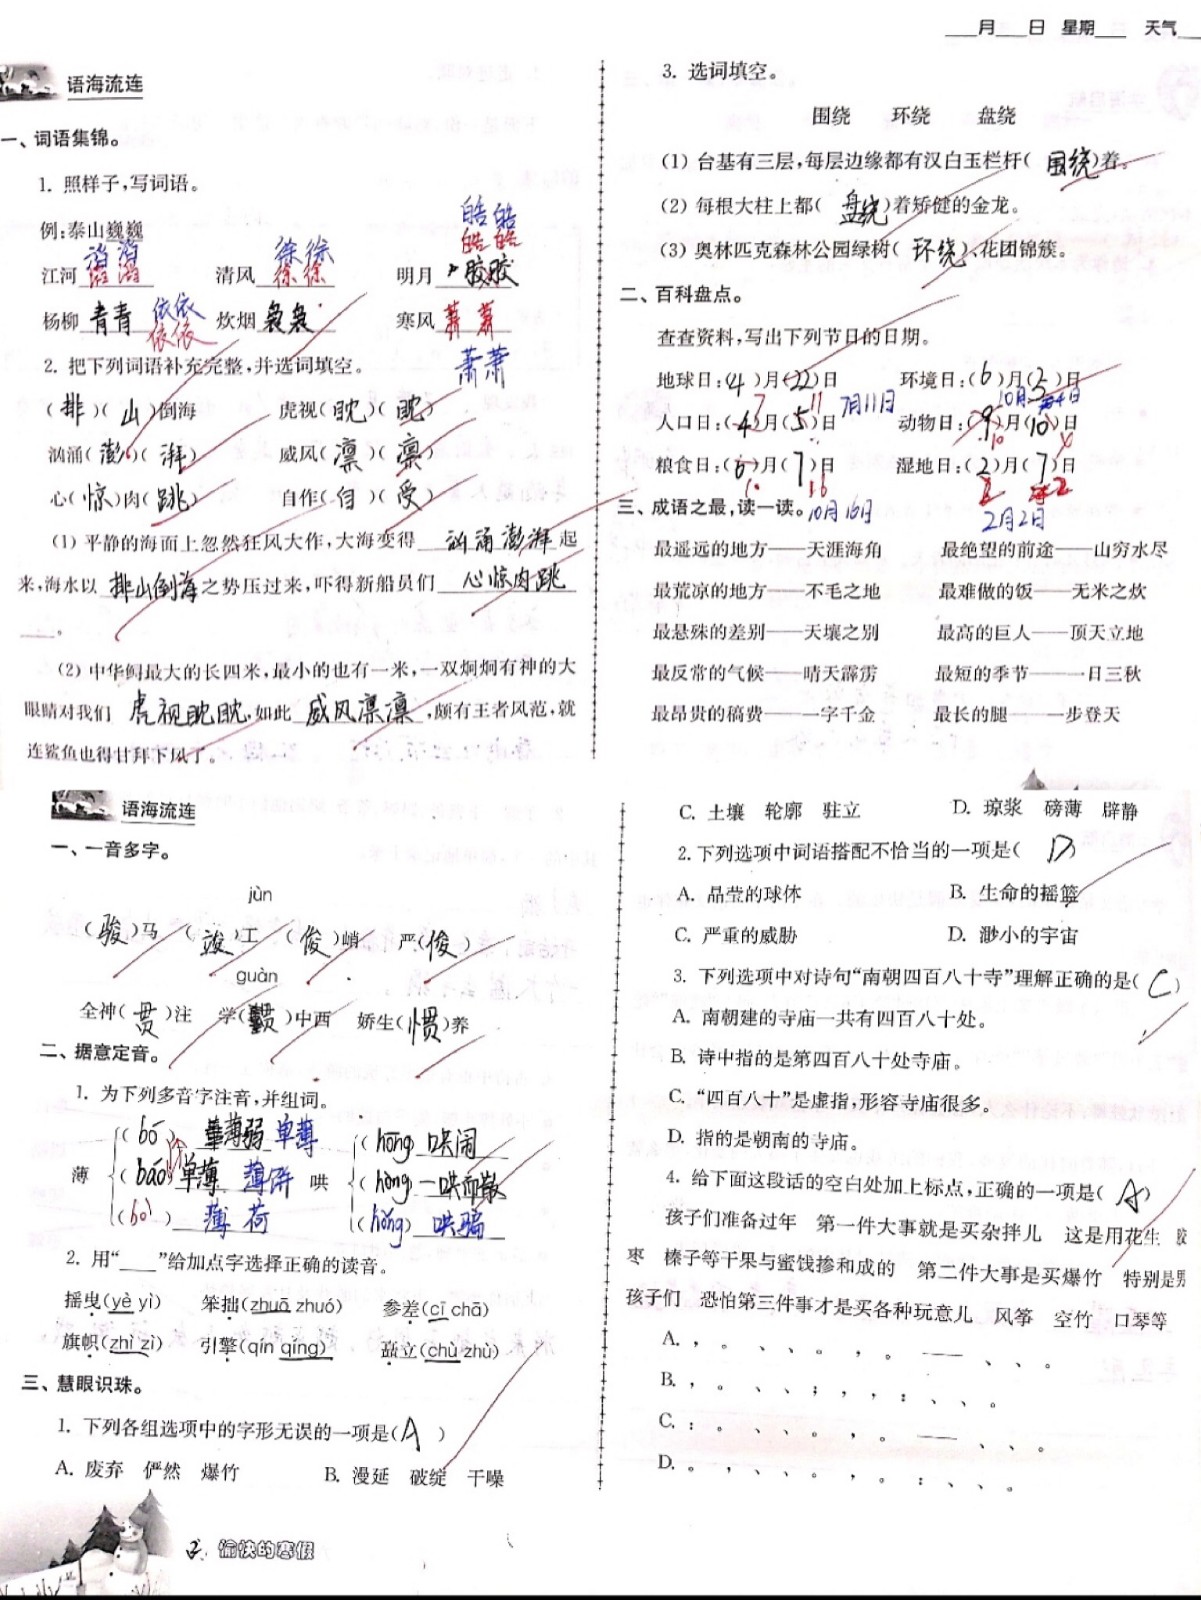 ___月___日 星期___ 天气___
语海流连
一、词语集锦。
1. 照样子,写词语。
例:泰山巍巍
皓皓
滔滔 徐徐 皓皓
江河滔滔 清风徐徐 明月皎皎
杨柳青青 依依 炊烟袅袅 寒风萧萧
依依
萧萧
2. 把下列词语补充完整,并选词填空。
(排)(山)倒海 虎视(眈)(眈)
汹涌(澎)(湃) 威风(凛)(凛)
心(惊)肉(跳) 自作(自)(受)
(1) 平静的海面上忽然狂风大作,大海变得 汹涌澎湃 起
来,海水以 排山倒海 之势压过来,吓得新船员们 心惊肉跳
___。
(2) 中华鲟最大的长四米,最小的也有一米,一双炯炯有神的大
眼睛对我们 虎视眈眈,如此 威风凛凛,颇有王者风范,就
连鲨鱼也得甘拜下风了。
3. 选词填空。
围绕 环绕 盘绕
(1) 台基有三层,每层边缘都有汉白玉栏杆(围绕)着。
(2) 每根大柱上都(盘绕)着矫健的金龙。
(3) 奥林匹克森林公园绿树(环绕)、花团锦簇。
二、百科盘点。
查查资料,写出下列节日的日期。
地球日:(4)月(22)日 环境日:(6)月(5)日
人口日:(4)月(5)日 7 11 7月11日 动物日:(9)月(10)日 10月4日
粮食日:(6)月(7)日 10 16 湿地日:(2)月(7)日 2 2
三、成语之最,读一读。 10月16日 2月2日
最遥远的地方——天涯海角 最绝望的前途——山穷水尽
最荒凉的地方——不毛之地 最难做的饭——无米之炊
最悬殊的差别——天壤之别 最高的巨人——顶天立地
最反常的气候——晴天霹雳 最短的季节——一日三秋
最昂贵的稿费——一字千金 最长的腿——一步登天
语海流连
一、一音多字。
jùn
(骏)马 (竣)工 (俊)峭 严(俊)
guàn
全神(贯)注 学(贯)中西 娇生(惯)养
二、据意定音。
1. 为下列多音字注音,并组词。
(bó) 薄弱 单薄 (hōng) 哄闹
薄 (báo) 单薄 薄饼 哄 (hòng) 一哄而散
(bò) 薄荷 (hǒng) 哄骗
2. 用“___”给加点字选择正确的读音。
摇曳(yè yì) 笨拙(zhuō zhuó) 参差(cī chā)
旗帜(zhì zì) 引擎(qín qíng) 矗立(chù zhù)
三、慧眼识珠。
1. 下列各组选项中的字形无误的一项是(A)
A. 废弃 俨然 爆竹 B. 漫延 破绽 干噪
愉快的寒假
C. 土壤 轮廓 驻立 D. 琼浆 磅薄 辟静
2. 下列选项中词语搭配不恰当的一项是(D)
A. 晶莹的球体 B. 生命的摇篮
C. 严重的威胁 D. 渺小的宇宙
3. 下列选项中对诗句“南朝四百八十寺”理解正确的是(C)
A. 南朝建的寺庙一共有四百八十处。
B. 诗中指的是第四百八十处寺庙。
C. “四百八十”是虚指,形容寺庙很多。
D. 指的是朝南的寺庙。
4. 给下面这段话的空白处加上标点,正确的一项是(A)
孩子们准备过年 第一件大事就是买杂拌儿 这是用花生 胶
枣 榛子等干果与蜜饯掺和成的 第二件大事是买爆竹 特别是男
孩子们 恐怕第三件事才是买各种玩意儿 风筝 空竹 口琴等
A. , 。 、 、 。 , 。 —— 、 、 。
B. , 。 、 、 ; , , : 、 、 。
C. : 。 、 、 。 , 。 —— 、 、 。
D. 。 , 、 、 。 , 。 : 、 、 。